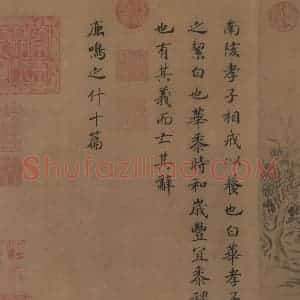 南陔孝子相戒以養也白華孝子
之絜白也華黍時和歲豐宜黍稷
也有其義而亡其辭
鹿鳴之什十篇
Shufaziliao.com